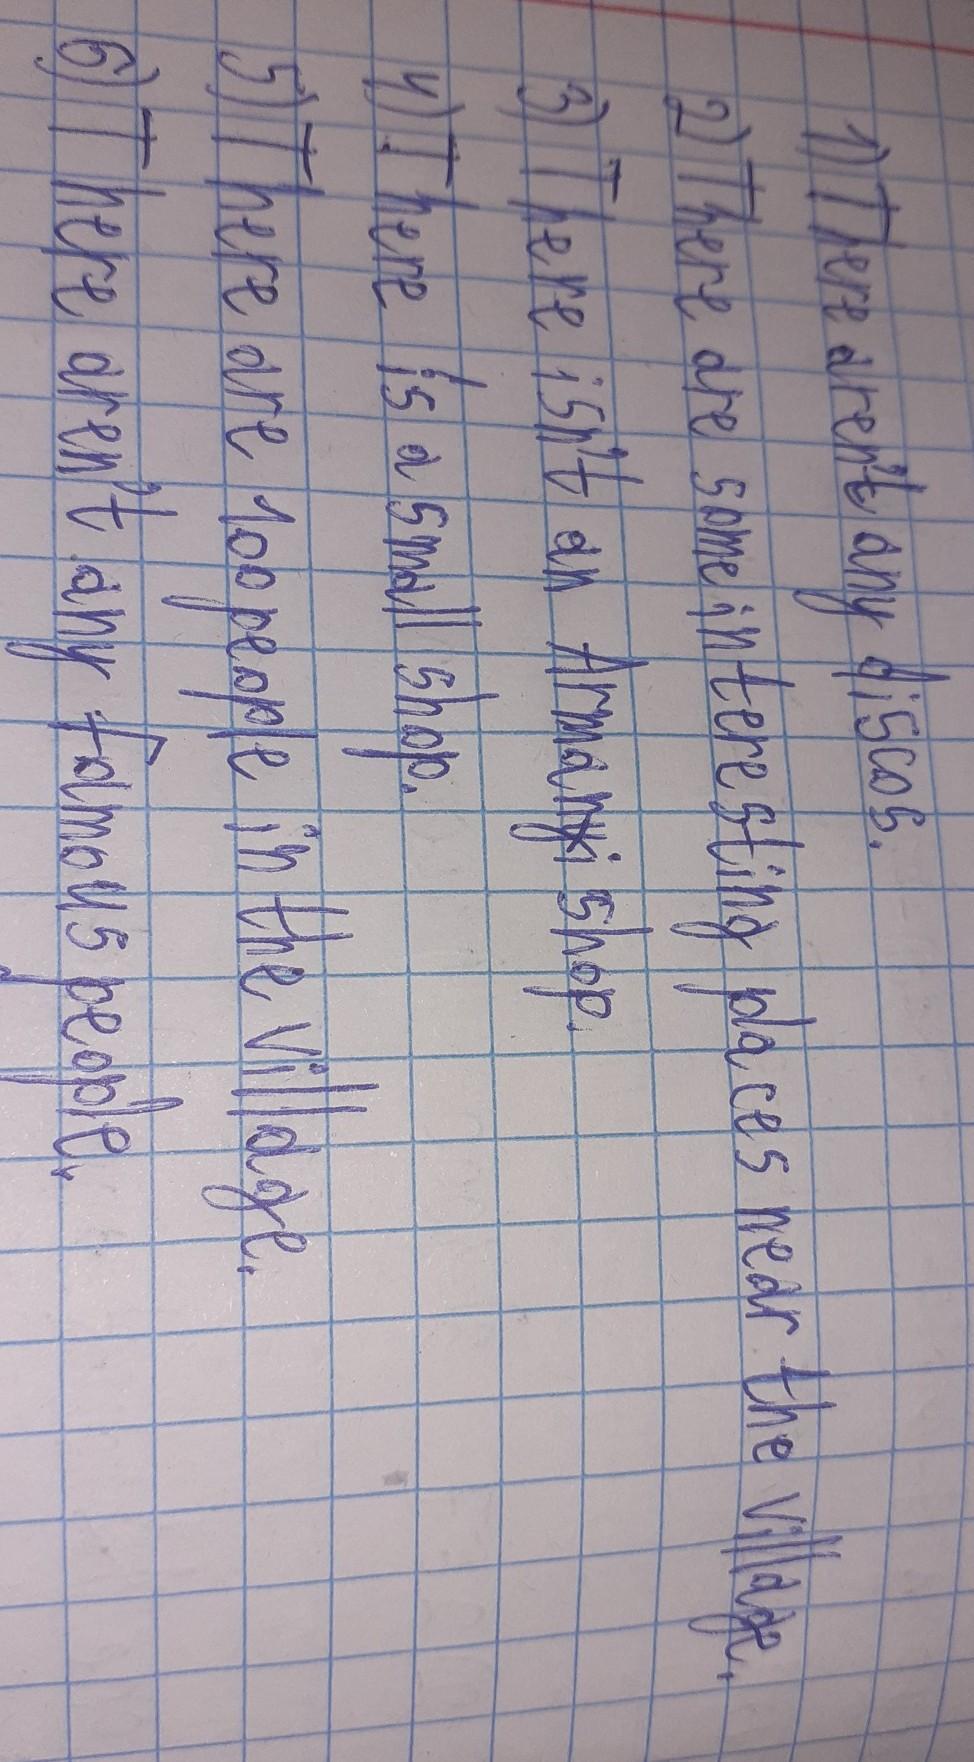 1) There aren't any discos.
2) There are some interesting places near the village.
3) There isn't an Armani shop.
4) There is a small shop.
5) There are 100 people in the village.
6) There aren't any famous people.